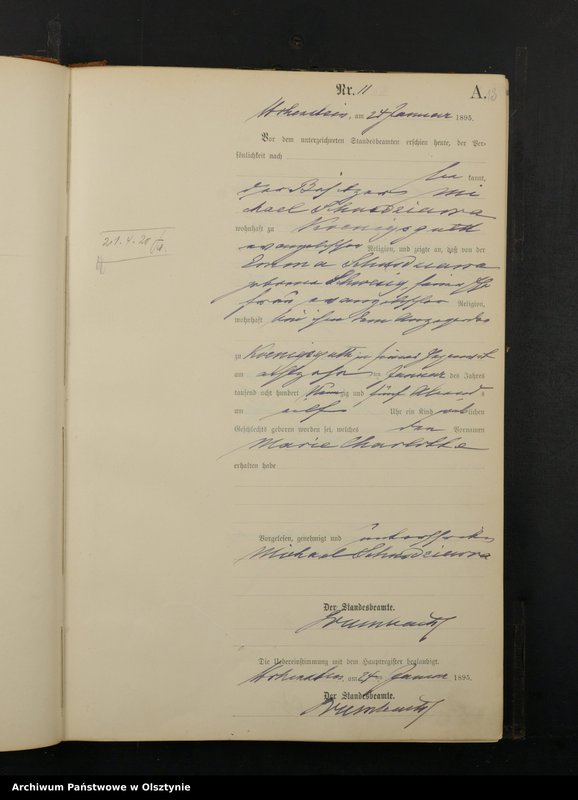 Nr. 11
A.
Hohenstein, am 24 Januar 1895.
Vor dem unterzeichneten Standesbeamten erschien heute, der Per-
sönlichkeit nach
kannt,
der Besitzer Mi
chael
wohnhaft zu Koenigsguth
evangelischer Religion, und zeigte an, daß von der
Emma
geborene seine Ehe
frau, evangelischer Religion,
wohnhaft bei ihm dem Anzeigenden
zu Koenigsguth in seiner Gegenwart
am Januar des Jahres
tausend acht hundert neunzig und fünf Abends
am elf Uhr ein Kind weiblichen
Geschlechts geboren worden sei, welches den Vornamen
Marie Charlotte
erhalten habe
21.4.20
Vorgelesen, genehmigt und unterschrieben
Michael
Der Standesbeamte.
Die Uebereinstimmung mit dem Hauptregister beglaubigt.
Hohenstein, am 24 Januar 1895.
Der Standesbeamte.
Archiwum Państwowe w Olsztynie